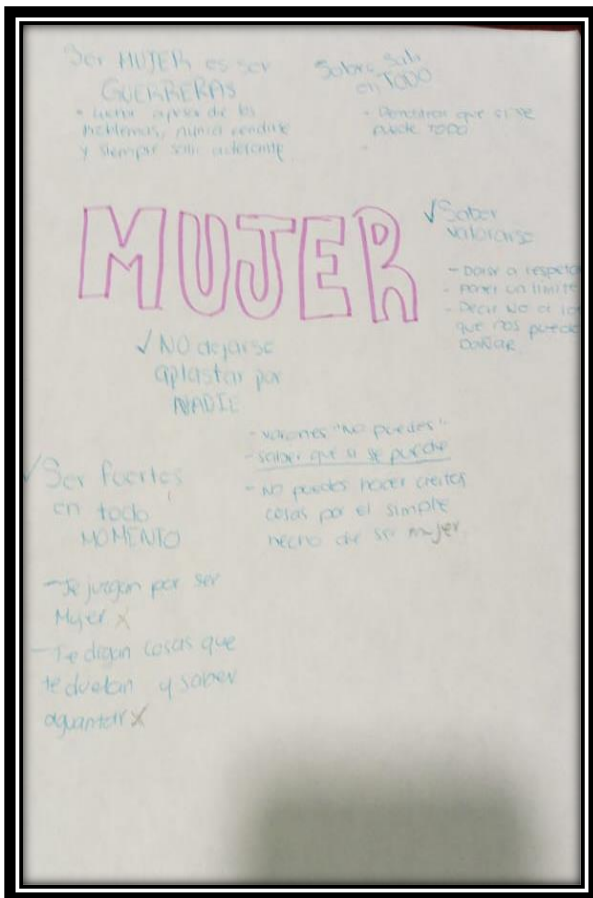 Ser MUJER es ser
GUERRERAS
- luchar apesar de los
problemas, nunca rendirse
y siempre salir adelante
Sobre Salir
en TODO
- Demostrar que si se
puede TODO
MUJER
✓ Saber
valorarse
- Darse a respetar
- Poner un limite
- Decir NO a lo
que nos puede
DAÑAR
✓ NO dejarse
aplastar por
NADIE
- varones "NO puedes"
- saber que si se puede
- NO puedes hacer ciertas
cosas por el simple
hecho de ser mujer
✓ Ser fuertes
en todo
MOMENTO
- Te juzgan por ser
Mujer X
- Te digan cosas que
te duelan y saber
aguantar X